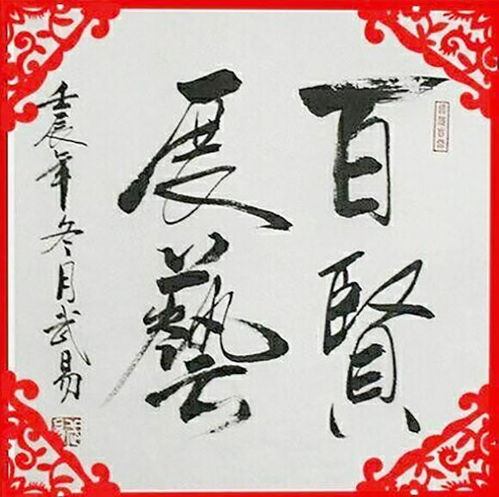 百賢
展藝
壬辰年冬月武易